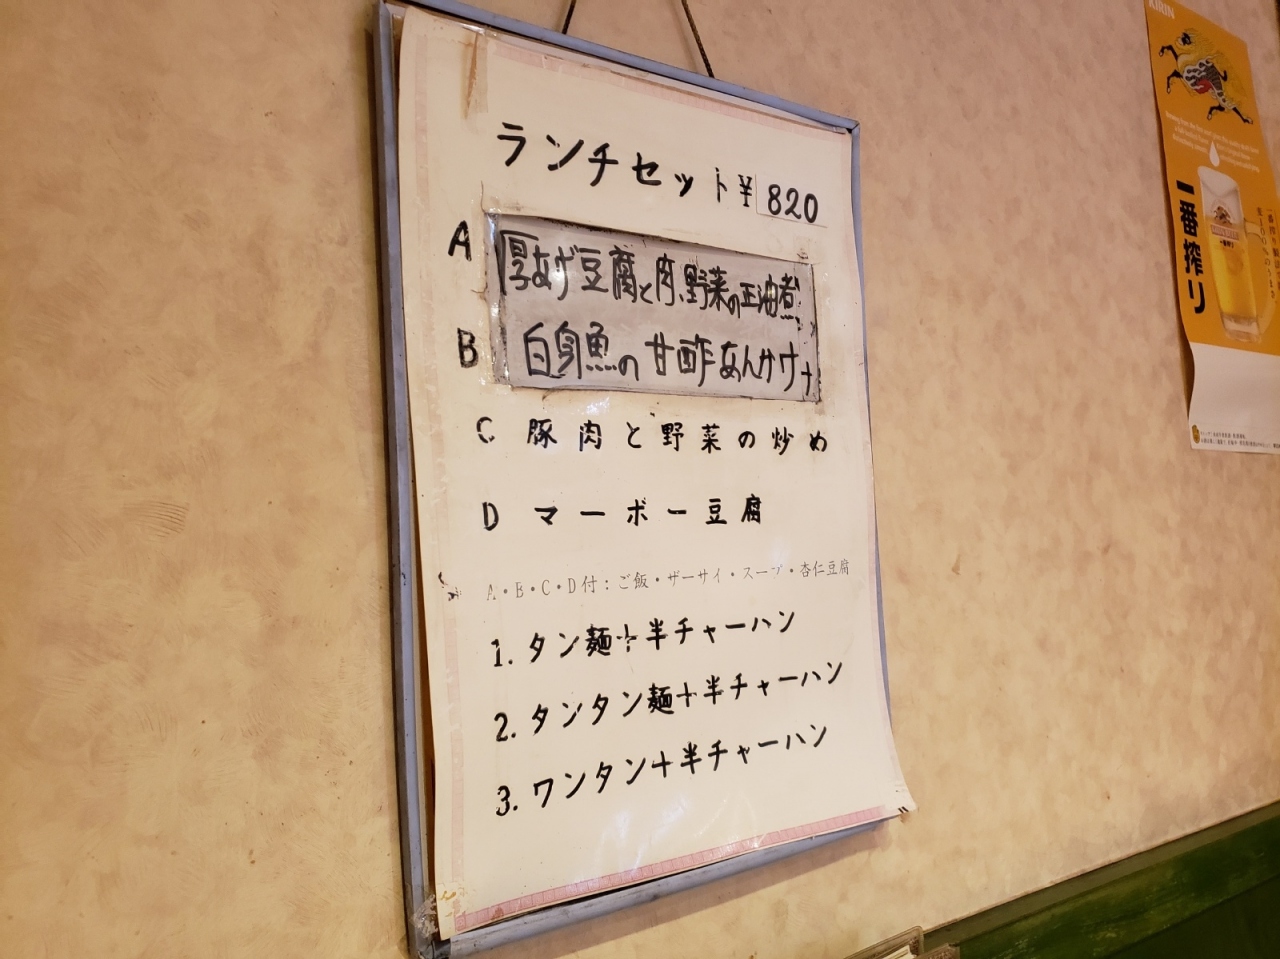 ランチセット ¥820
A 厚あげ豆腐と肉、野菜の正油煮
B 白身魚の甘酢あんかけ
C 豚肉と野菜の炒め
D マーボー豆腐
A・B・C・D付：ご飯・ザーサイ・スープ・杏仁豆腐
1. タン麺+半チャーハン
2. タンタン麺+半チャーハン
3. ワンタン+半チャーハン
KIRIN
一番搾り